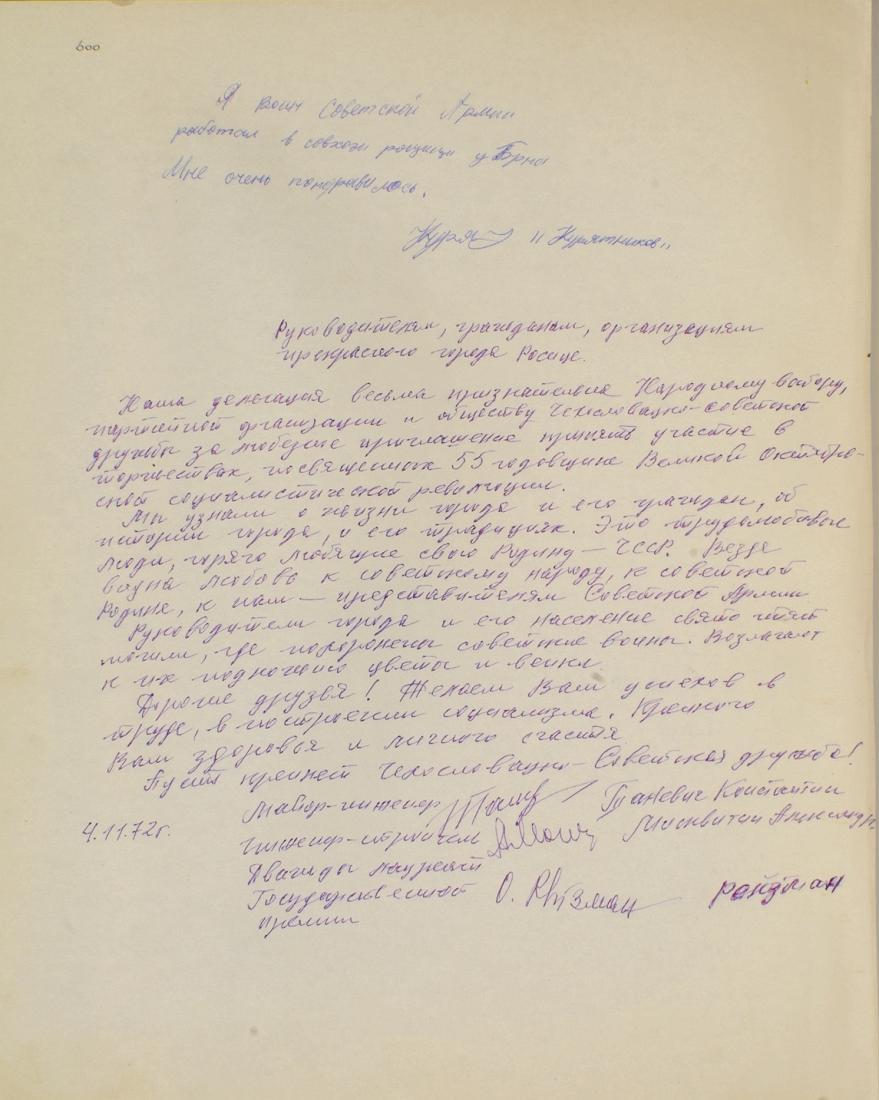 600
Я воин Советской Армии
работал в совхози рощици у Брна
Мне очень пондравилось.
"Курятников"
Руководителям, гражданам, организациям
прекрасного города Росице.
Наша делегация весьма признательна Народному выбору,
партийной организации и обществу Чехословацко-советской
дружбы за любезное приглашение принять участие в
торжествах, посвященных 55 годовщине Великой Октябрь-
ской социалистической революции.
Мы узнали о жизни города и его граждан, об
истории города, и его традициях. Это трудолюбивые
люди, горячо любящие свою Родину — ЧССР. Везде
видна любовь к советскому народу, к советской
Родине, к нам — представителям Советской Армии
Руководители города и его население свято чтят
могилы, где похоронены советские воины. Возлагают
к их подножию цветы и венки.
Дорогие друзья! Желаем Вам успехов в
труде, в построении социализма. Крепкого
Вам здоровья и личного счастья
Пусть крепнет Чехословацко-Советская дружба!
Майор-инженер Таневич Константин
4.11.72г. Инженер-строитель Москвитин Александр
Дважды лауреат
Государственной О. Райзман райзман
премии